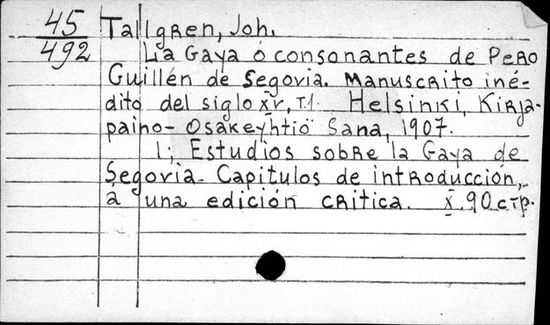 45 Tallgren, Joh.
492 La Gaya ó consonantes de Pero
Guillén de Segovia. Manuscrito iné-
dito del siglo XV, T.1. Helsinki, Kirja-
paino-Osakeyhtiö Sana, 1907.
1; Estudios sobre la Gaya de
Segovia. Capitulos de introducción,
á una edición critica. X, 90 стр.